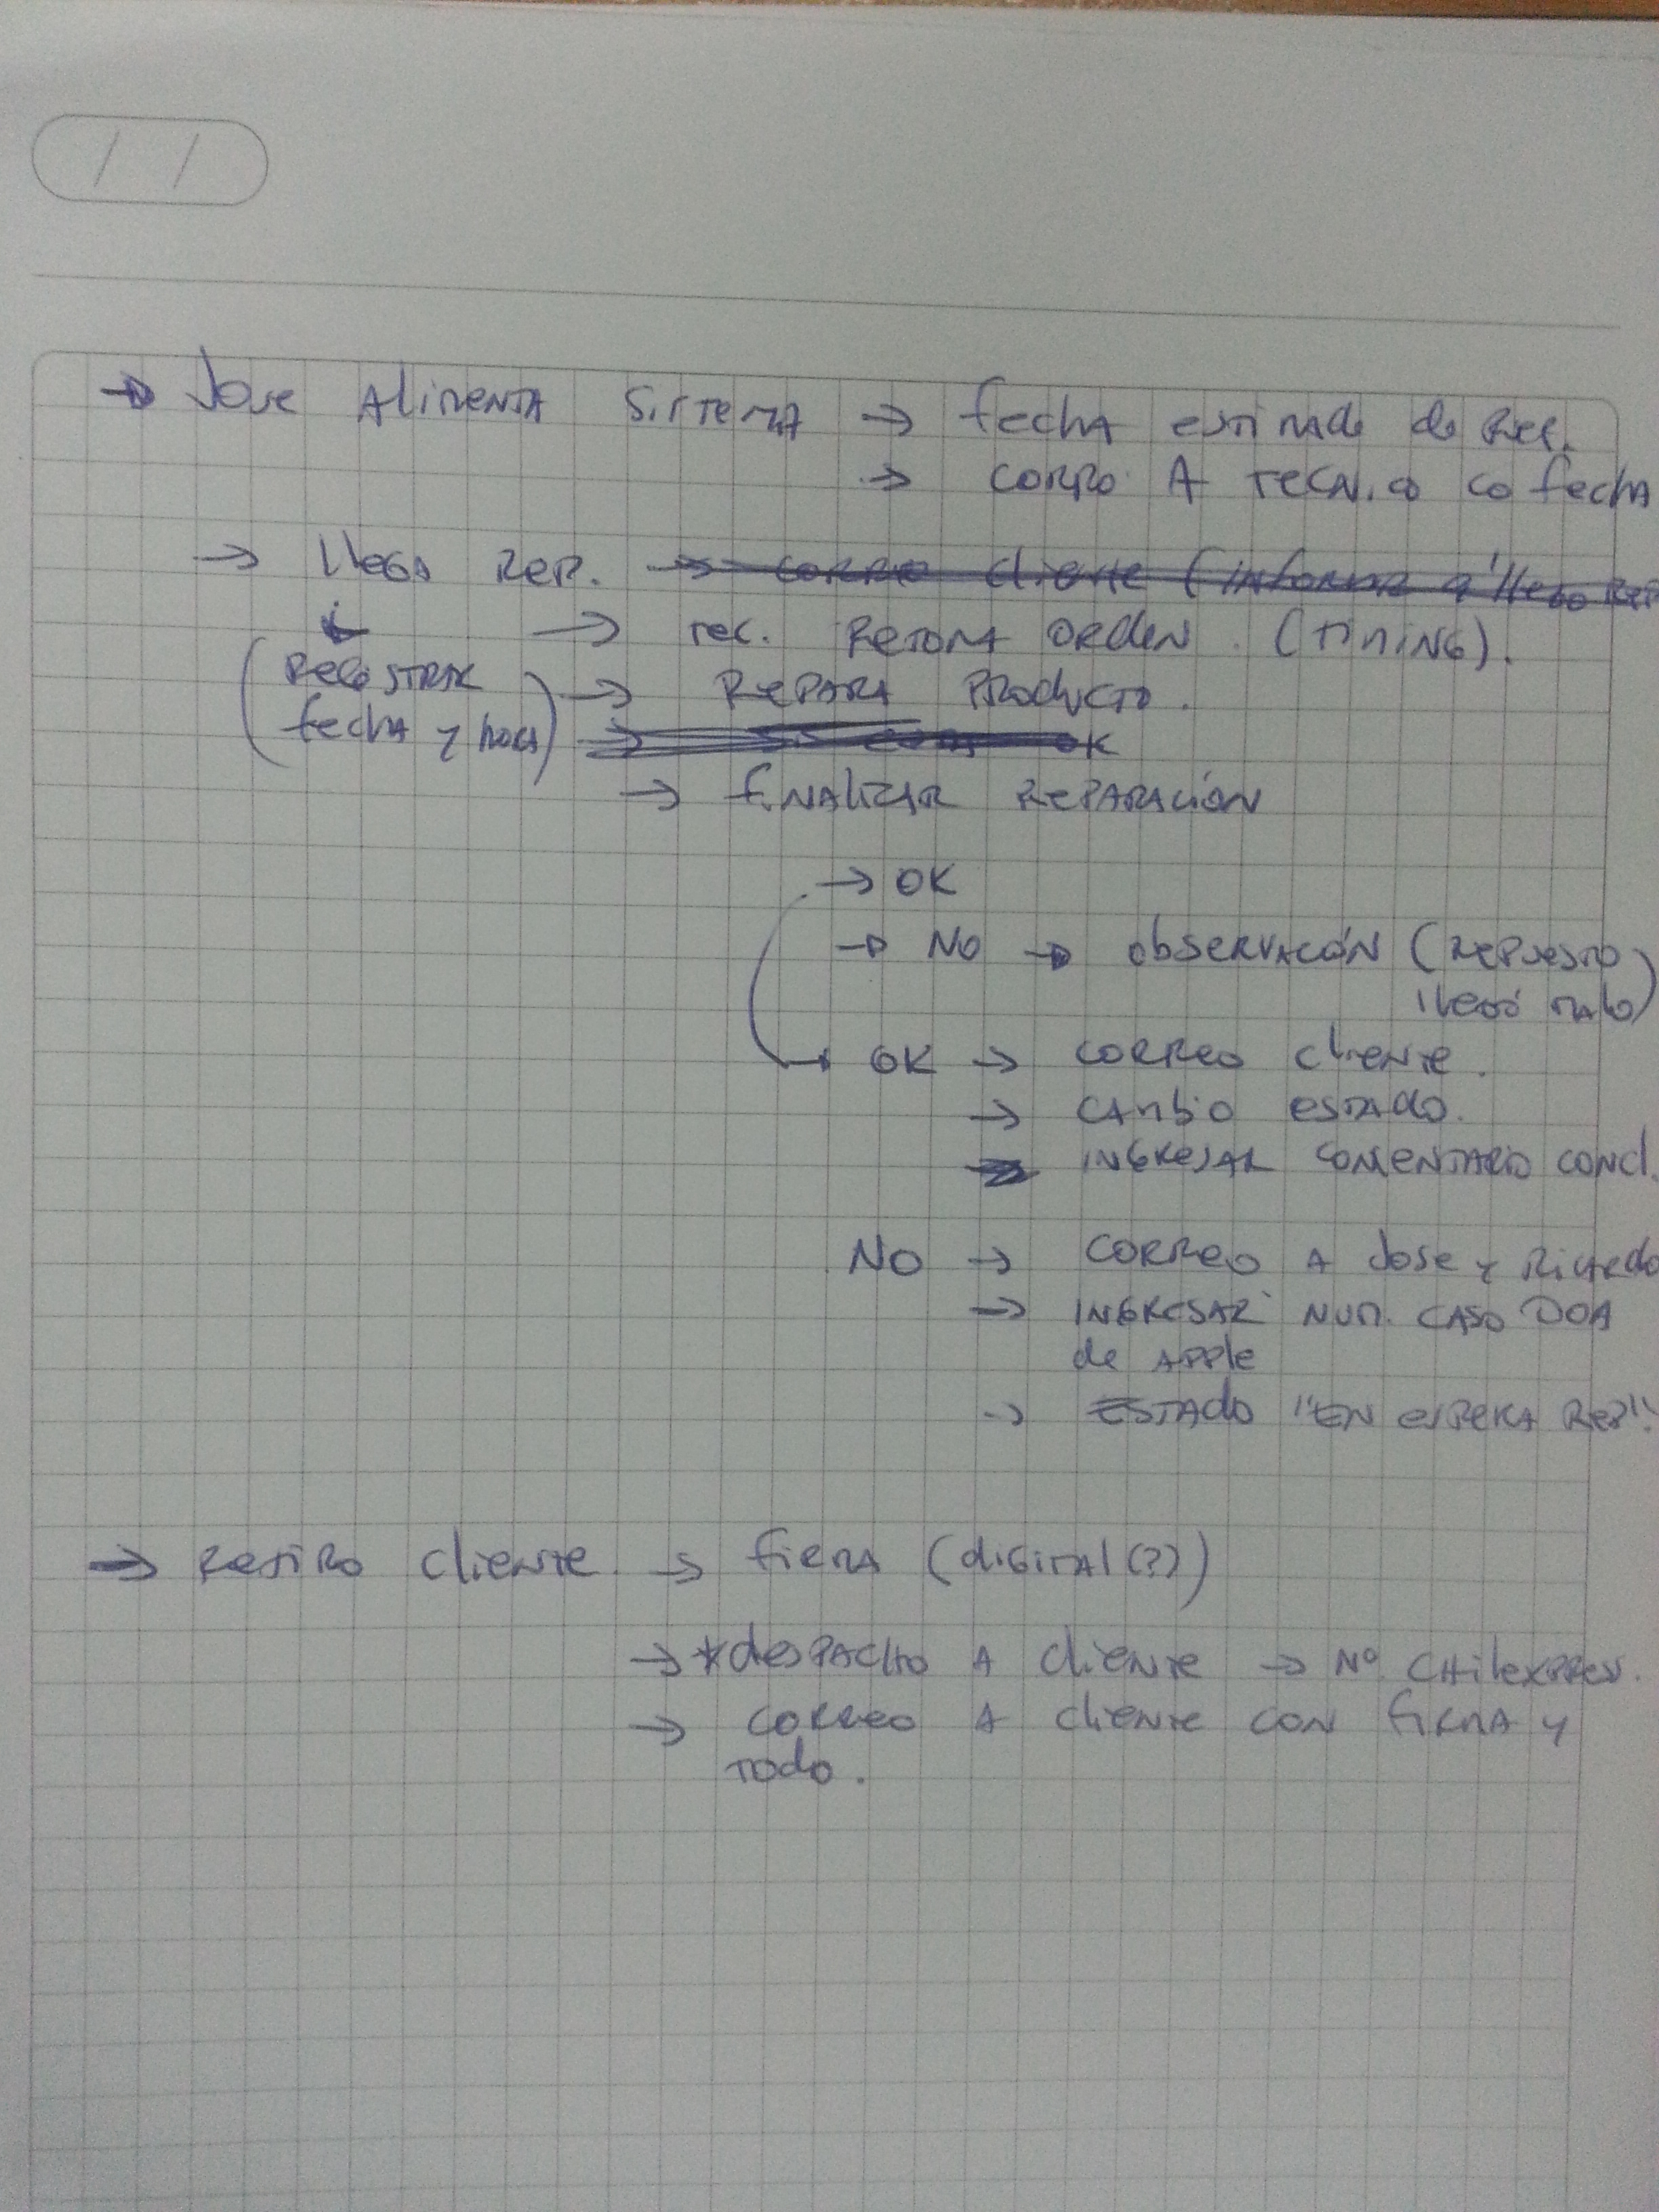 → Jose Alimenta Sistema → fecha estimada de Rep.
→ corro A Tecnico co fecha
→ llega Rep. → correo cliente (informar q' llego Rep
→ tec. Retoma orden. (timing).
(Registrar
fecha y hora)
→ Repara producto.
→ OK
→ finalizar Reparación
→ OK
→ NO → observación (Repuesto
llegó malo)
→ OK → correo cliente.
→ cambio estado.
→ ingresar comentario concl.
NO → correo A Jose y Ricardo
→ ingresar num. caso DOA
de Apple
→ Estado "En espera Rep".
→ Retiro cliente. → firma (digital(?))
→ *despacho A cliente → Nº Chilexpress.
→ correo A cliente con firma y
todo.